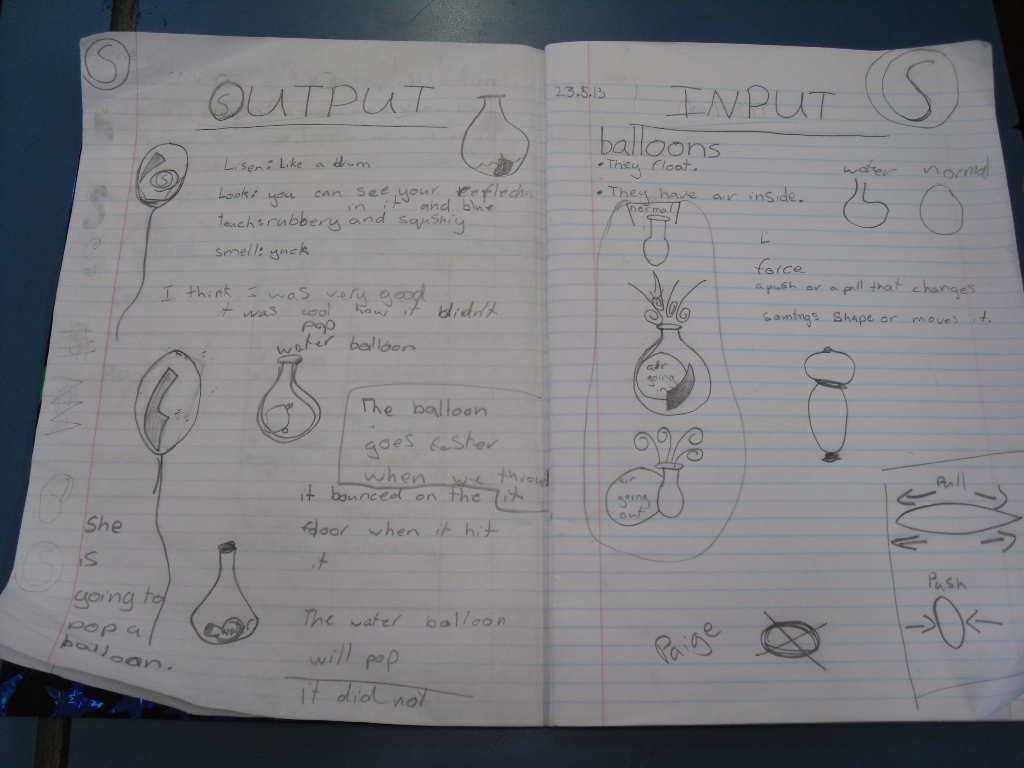 S
OUTPUT
Lisen: Like a drum
Look: you can see your reflectin
in it and blue
Touch: rubbery and squshiy
smell: yuck
I think I was very good
it was cool how it didn't
pop
water balloon
The balloon
goes faster
when we throw
it
it bounced on the
floor when it hit
it
She
is
going to
pop a
balloon.
water
The water balloon
will pop
it did not
23.5.13
INPUT
S
balloons
• They float.
• They have air inside.
water normal
normal
L
force
a push or a pull that changes
somings shape or moves it.
air
going
in
air
going
out
Pull
Push
Paige